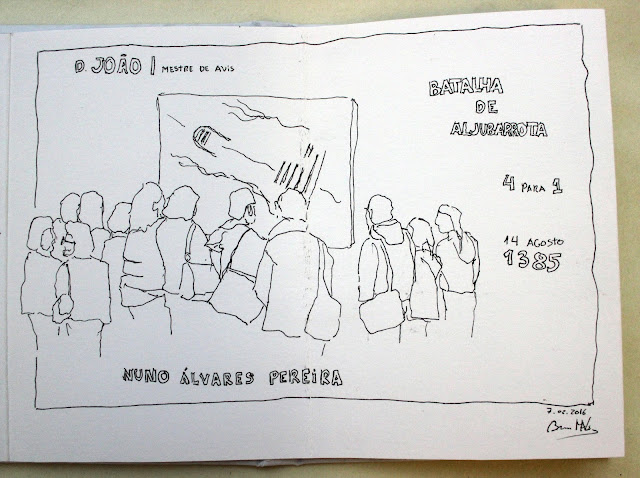 D. JOÃO I MESTRE DE AVIS
BATALHA
DE
ALJUBARROTA
4 PARA 1
14 AGOSTO
1385
NUNO ÁLVARES PEREIRA
7.02.2016